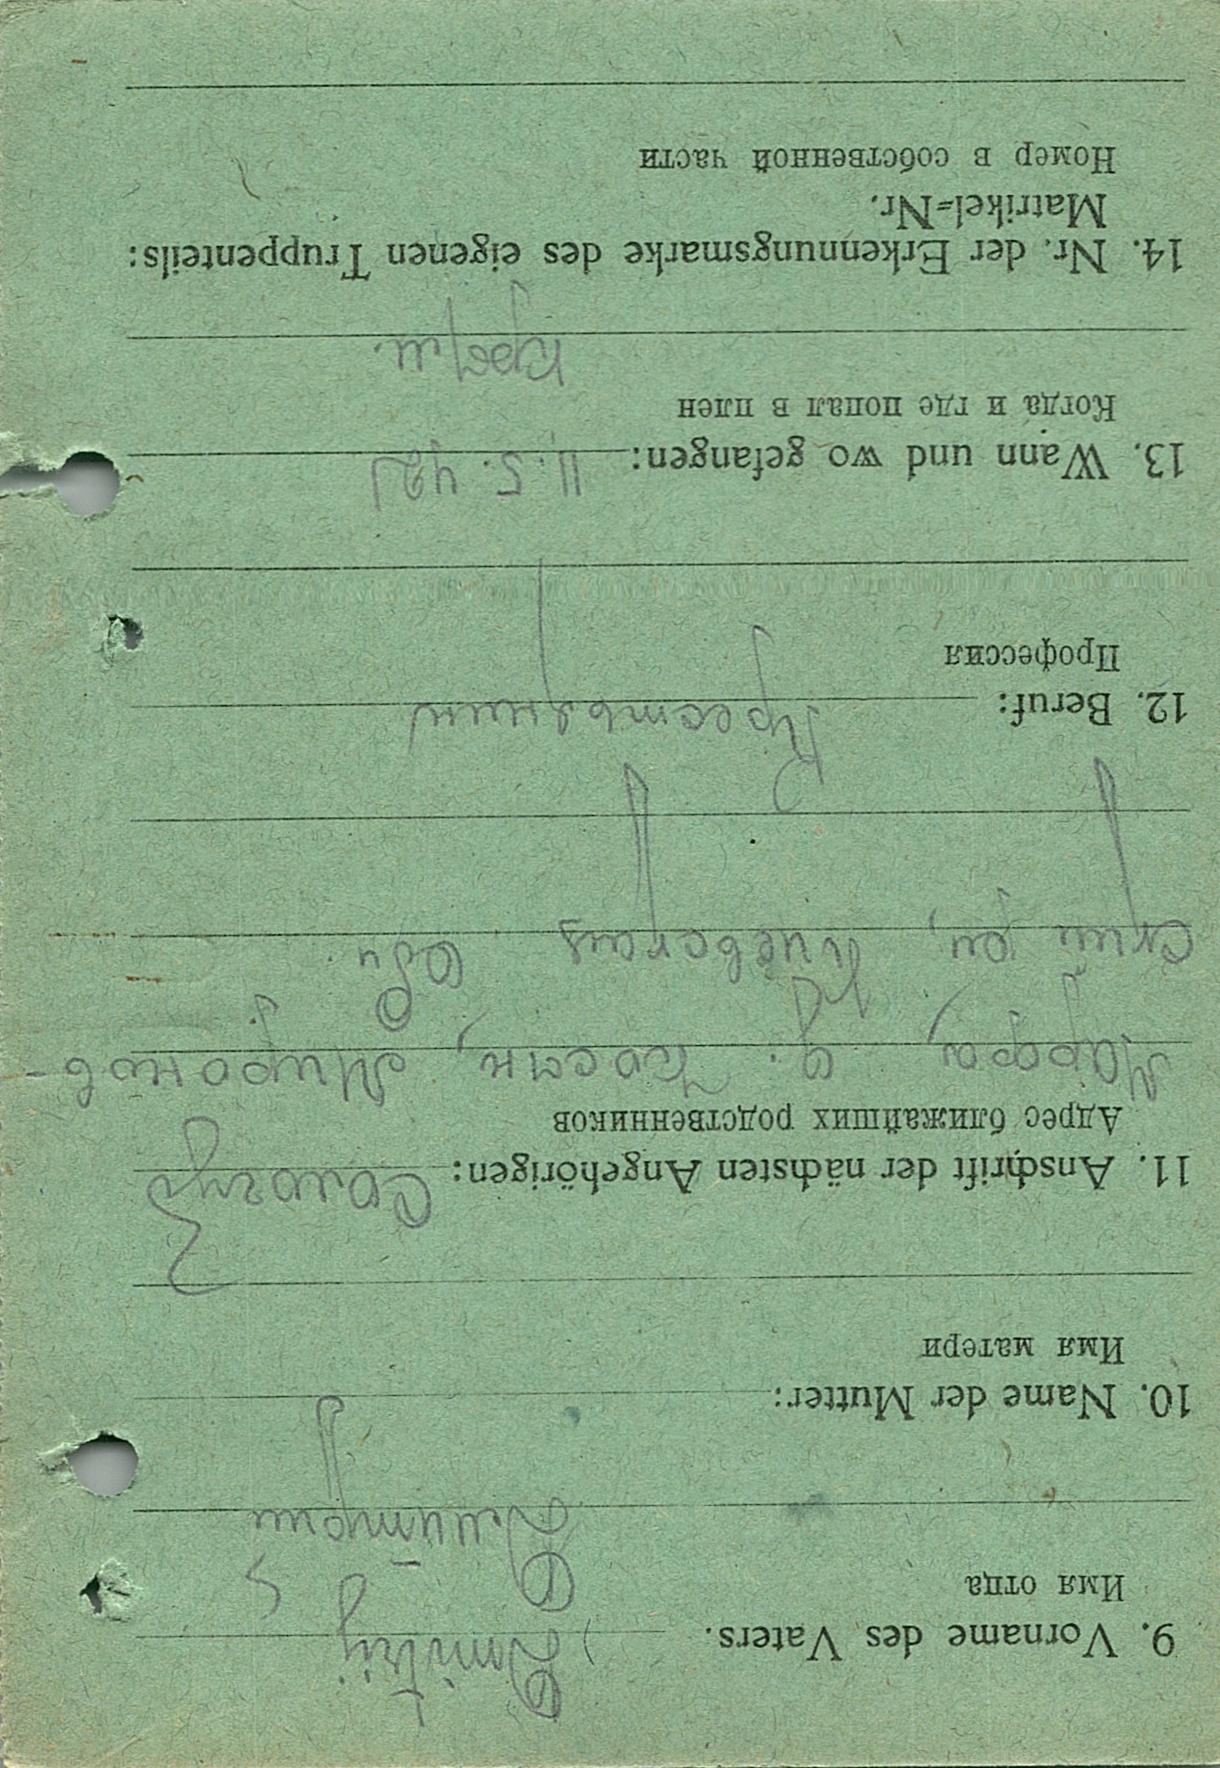 9. Vorname des Vaters. Dmitrij
Имя отца
Дмитрий
10. Name der Mutter:
Имя матери
11. Anschrift der nächsten Angehörigen:
Адрес ближайших родственников
Миронов-
Киевская обл.
12. Beruf: Крестьянин
Профессия
13. Wann und wo gefangen: 11.5.42
Когда и где попал в плен
14. Nr. der Erkennungsmarke des eigenen Truppenteils:
Matrikel=Nr.
Номер в собственной части